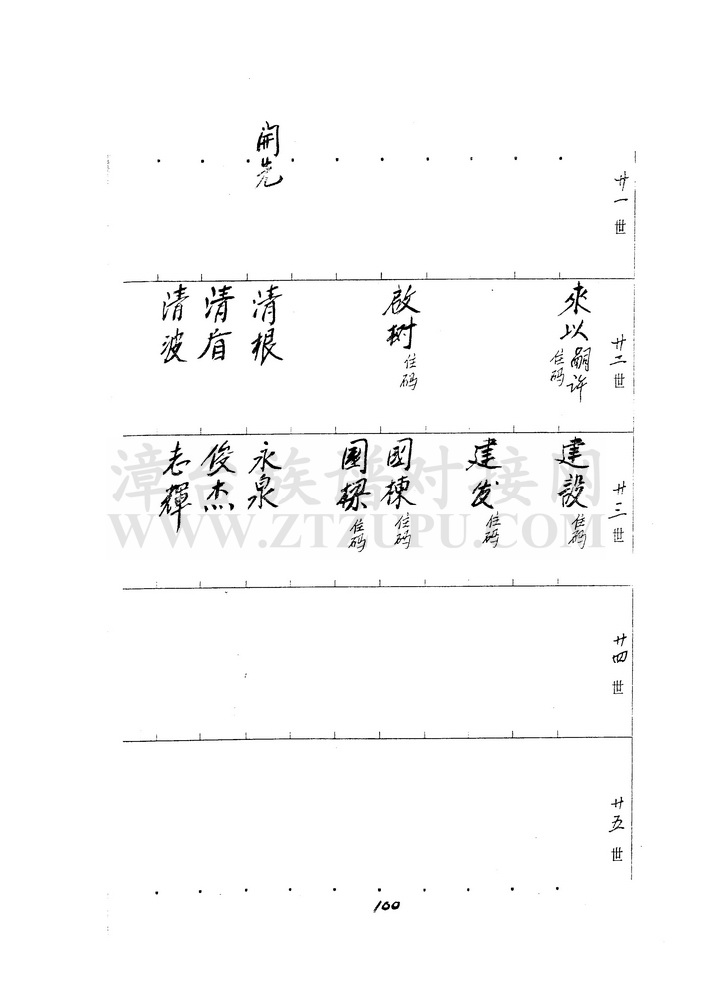 廿一世
開先
廿二世
來以嗣許住码
啟树住码
清根
清首
清波
廿三世
建設住码
建发住码
國棟住码
國樑住码
永泉
俊杰
志輝
廿四世
廿五世
100
漳台族谱对接网
WWW.ZTZUPU.COM